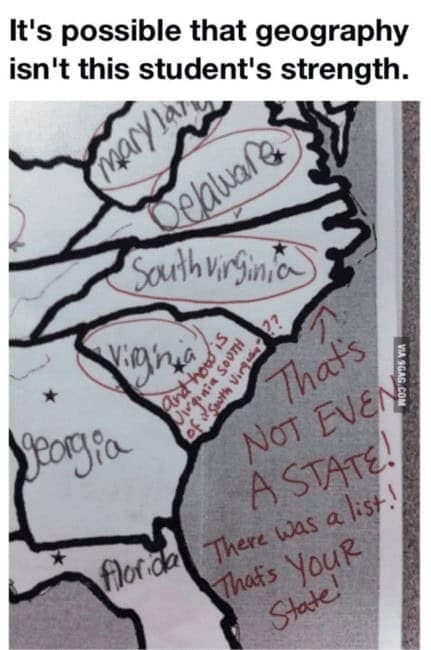 It's possible that geography
isn't this student's strength.
maryland
Delaware
South virginia
Virginia
and how is
Virginia South
of "South Virginia"??
georgia
florida
That's
NOT EVEN
A STATE!
There was a list!
Thats YOUR
State!
VIA 9GAG.COM